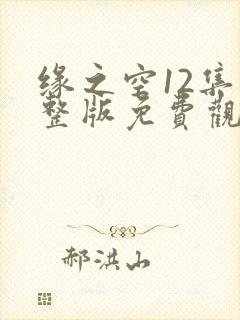 缘之空12集
整版免費觀
郝洪山